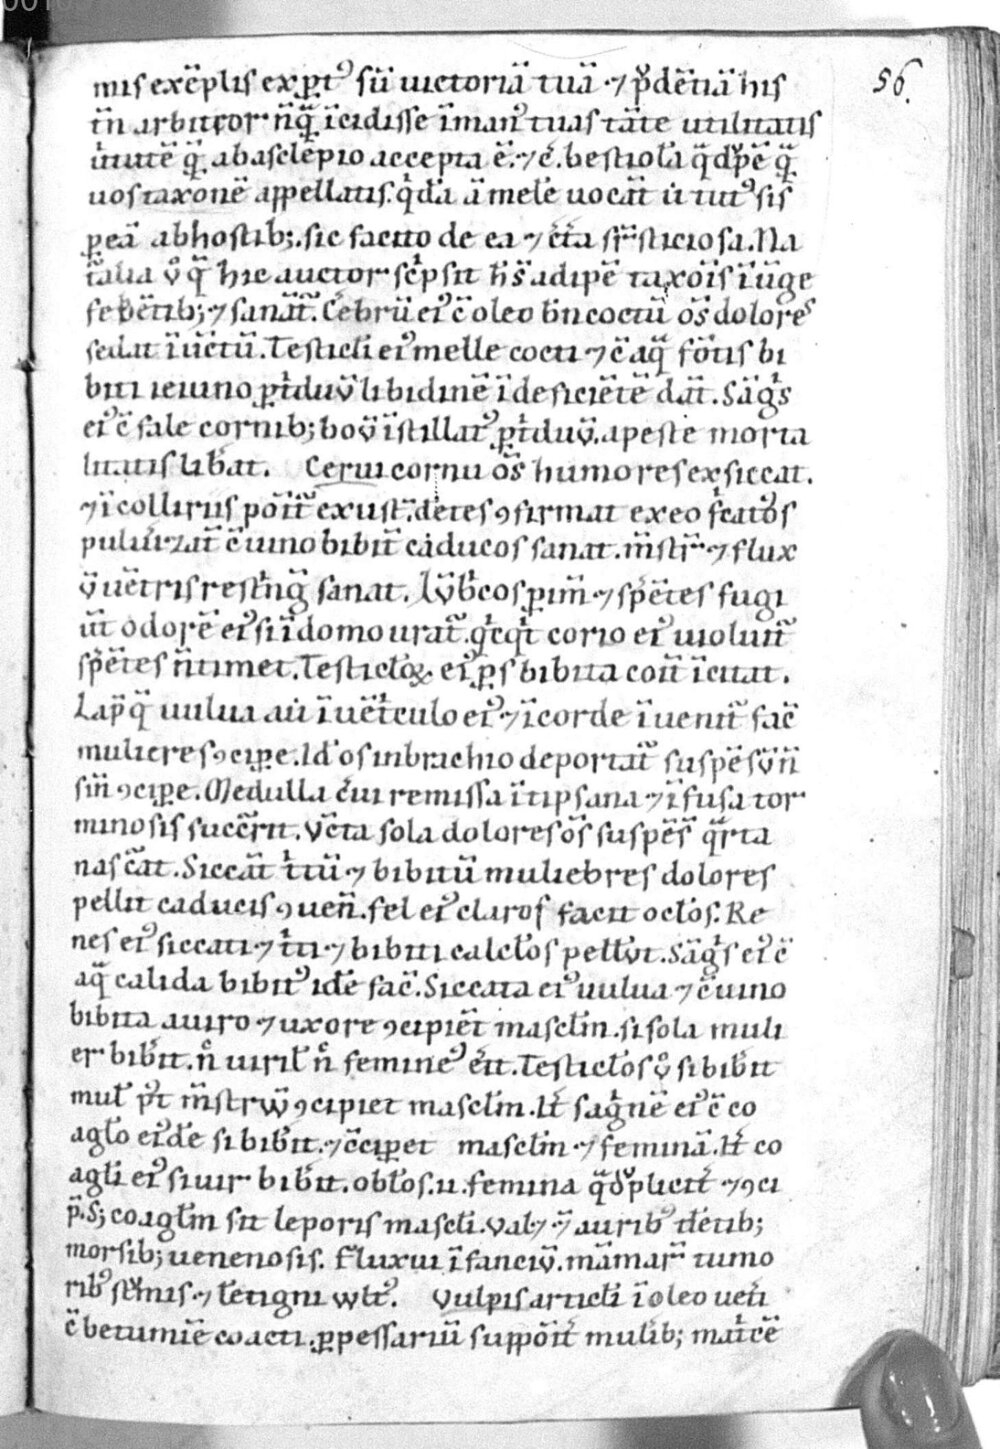 56.
mis exẽplis exꝑtꝰ sũ uictoriã tuã ⁊ p̃dẽtiã his
tñ arbitror nq̃ ĩcidisse ĩ manꝰ tuas tãte utilitatis
q̃ ab asclepio accepta ẽ. ⁊ ẽ. bestiola q̃
uos taxonẽ appellatis. q̃dã ã mele uocãt ut tutꝰ sis
ꝑ eã ab hostib; sic facito de ea ⁊ sticiosa. Na
talia ṽ q̃ hic auctor sc̃psit adipẽ taxoĩs ĩũge
febẽtib; ⁊ sanat̃. Cebrũ eiꝰ c̃ oleo bñ coctũ os̃ dolores
sedat ĩũctũ. Testicl̃i eiꝰ melle cocti ⁊ c̃ aq̃ fõtis bi
biti ieiuno ꝑ tduṽ libidinẽ ĩ deficiẽtẽ dãt. Sãgs
eiꝰ c̃ sale cornib; boṽ ĩstillatꝰ ꝑ tduṽ. a peste morta
litatis lib̃at. Cerui cornu os̃ humores exsiccat.
⁊ ĩ colliriis põit̃ exust̃. dẽtes ꝯfirmat ex eo f̃catos
puluizat̃ c̃ uino bibit̃ caducos sanat. m̃str̃ ⁊ flux
ṽ uẽtris restñg̃ sanat. Lṽbcos ꝑim̃ ⁊ sp̃ẽtes fugi
ũt odorẽ eiꝰ si ĩ domo urat̃. q̃cq̃ corio eiꝰ uoluit̃
sp̃ẽtes ñ timet. Testiclꝰ eiꝰ ꝑs bibita coit̃ ĩcitat.
Lap̃ q̃ uulua aut̃ ĩ uẽt̃culo eiꝰ ⁊ ĩ corde ĩuenit̃ fac̃
mulieres ꝯciꝑe. Id os in brachio deportat̃ suspẽsṽ ñ
siñ ꝯciꝑe. Medulla c̃ui remissa ĩ tipsana ⁊ ĩfusa tor
minosis succ̃rit. Vc̃ta sola dolores os̃ suspẽs̃ q̃rta
nas c̃at. Siccãt t̃tũ ⁊ bibitũ muliebres dolores
pellit caducis ꝯueñ. fel eiꝰ claros facit ocl̃os. Re
nes eiꝰ siccati ⁊ t̃ti ⁊ bibiti calcl̃os pell̃ṽt. Sãgs eiꝰ c̃
aq̃ calida bibitꝰ idẽ fac̃. Siccata eiꝰ uulua ⁊ c̃ uino
bibita a uiro ⁊ uxore ꝯcipiẽt mascl̃m. si sola muli
er bib̃it. ñ uiril̃ ñ femineꝰ ẽit. Testicl̃os ṽ si bib̃it
mul̃ pꝰt m̃strṽ ꝯcipiet mascl̃m. It̃ sãgnẽ eiꝰ c̃ co
agl̃o eiꝰdẽ si bib̃it. ⁊ c̃ciꝑet mascl̃m ⁊ feminã. It̃ co
agl̃i eiꝰ si uir bib̃it. obl̃os. ii. femina q̃dṽplicit̃ ⁊ ꝯci
p̃. S; coagl̃m sit leporis mascl̃i. val; ⁊ ĩ auribꝰ dẽtib;
morsib; uenenosis. Fluxui ĩfanciṽ. mãmar̃ tumo
ribꝰ stẽmis. ⁊ lẽtigni Vulpis articl̃i ĩ oleo uet̃i
c̃ betumiẽ coacti. ꝑ pessariũ suppõit̃ mulib; mat̃cẽ